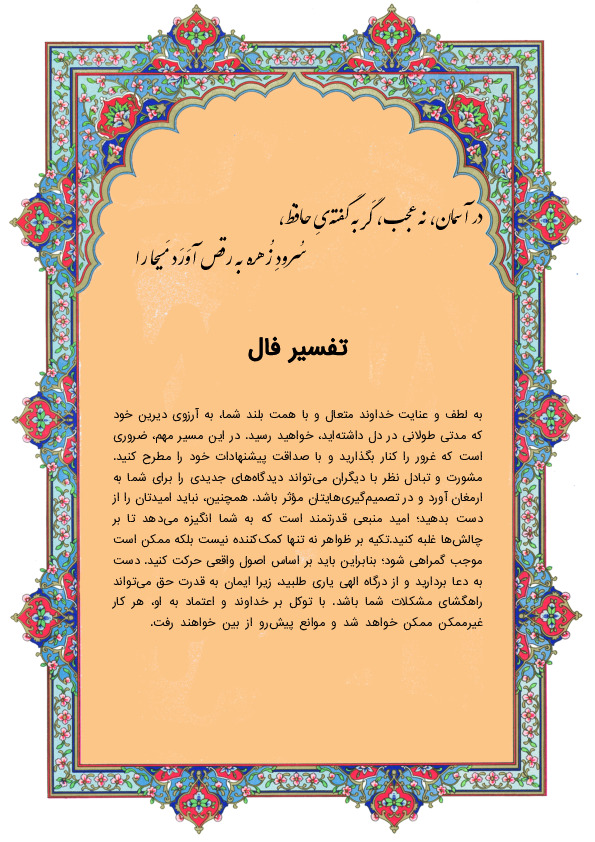 در آسمان، نه عجب، گر به گفته‌یِ حافظ،
سُرودِ زُهره به رقص آوَرَد مَسیحا را
تفسیر فال
به لطف و عنایت خداوند متعال و با همت بلند شما، به آرزوی دیرین خود
که مدتی طولانی در دل داشته‌اید، خواهید رسید. در این مسیر مهم، ضروری
است که غرور را کنار بگذارید و با صداقت پیشنهادات خود را مطرح کنید.
مشورت و تبادل نظر با دیگران می‌تواند دیدگاه‌های جدیدی را برای شما به
ارمغان آورد و در تصمیم‌گیری‌هایتان مؤثر باشد. همچنین، نباید امیدتان را از
دست بدهید؛ امید منبعی قدرتمند است که به شما انگیزه می‌دهد تا بر
چالش‌ها غلبه کنید.تکیه بر ظواهر نه تنها کمک‌کننده نیست بلکه ممکن است
موجب گمراهی شود؛ بنابراین باید بر اساس اصول واقعی حرکت کنید. دست
به دعا بردارید و از درگاه الهی یاری طلبید، زیرا ایمان به قدرت حق می‌تواند
راهگشای مشکلات شما باشد. با توکل بر خداوند و اعتماد به او، هر کار
غیرممکن ممکن خواهد شد و موانع پیش‌رو از بین خواهند رفت.